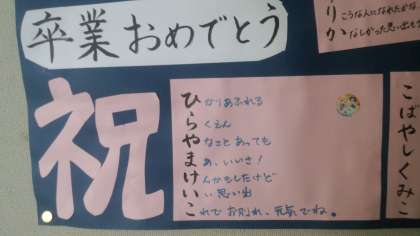 卒業おめでとう
りか
こうな人になれたかな
なしかった思い出も
祝
ひかりあふれる
らくえん
やなことあっても
まあ、いいさ!
けんかもしたけど
いい思い出
これでお別れ、元気でね。
こばやしくみこ